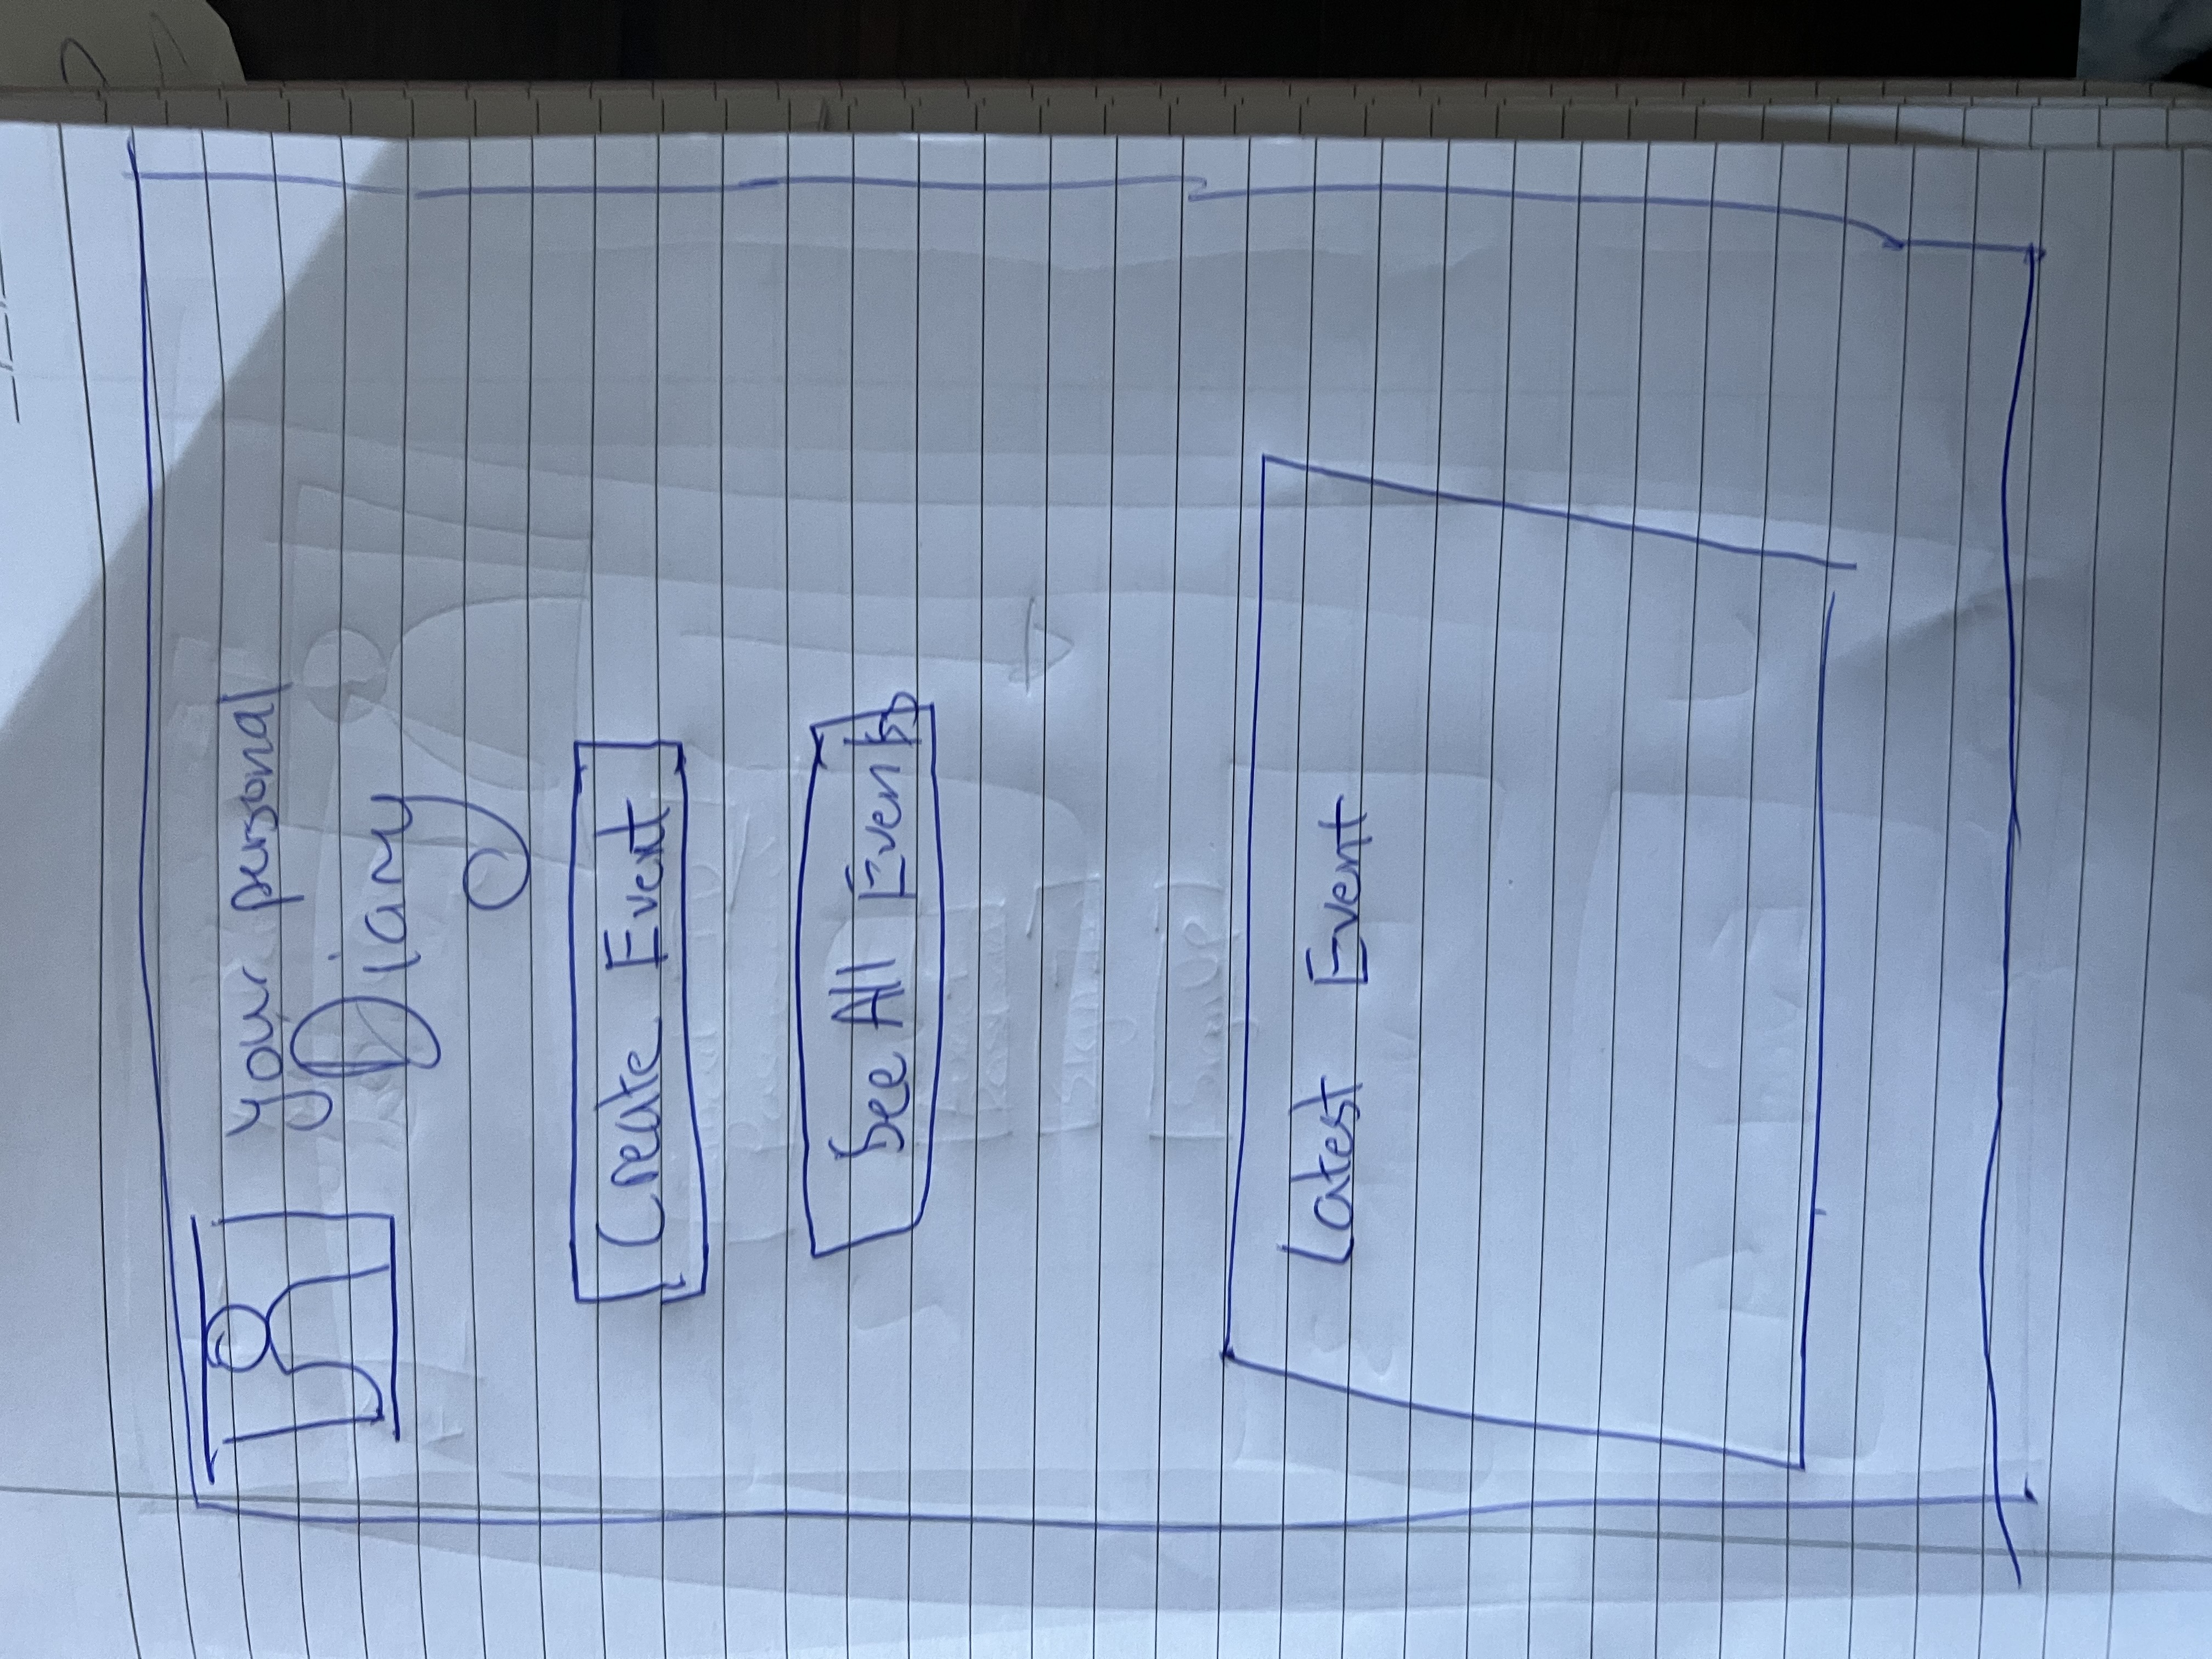 Your personal
Diary
Create Event
See All Events
Latest Event